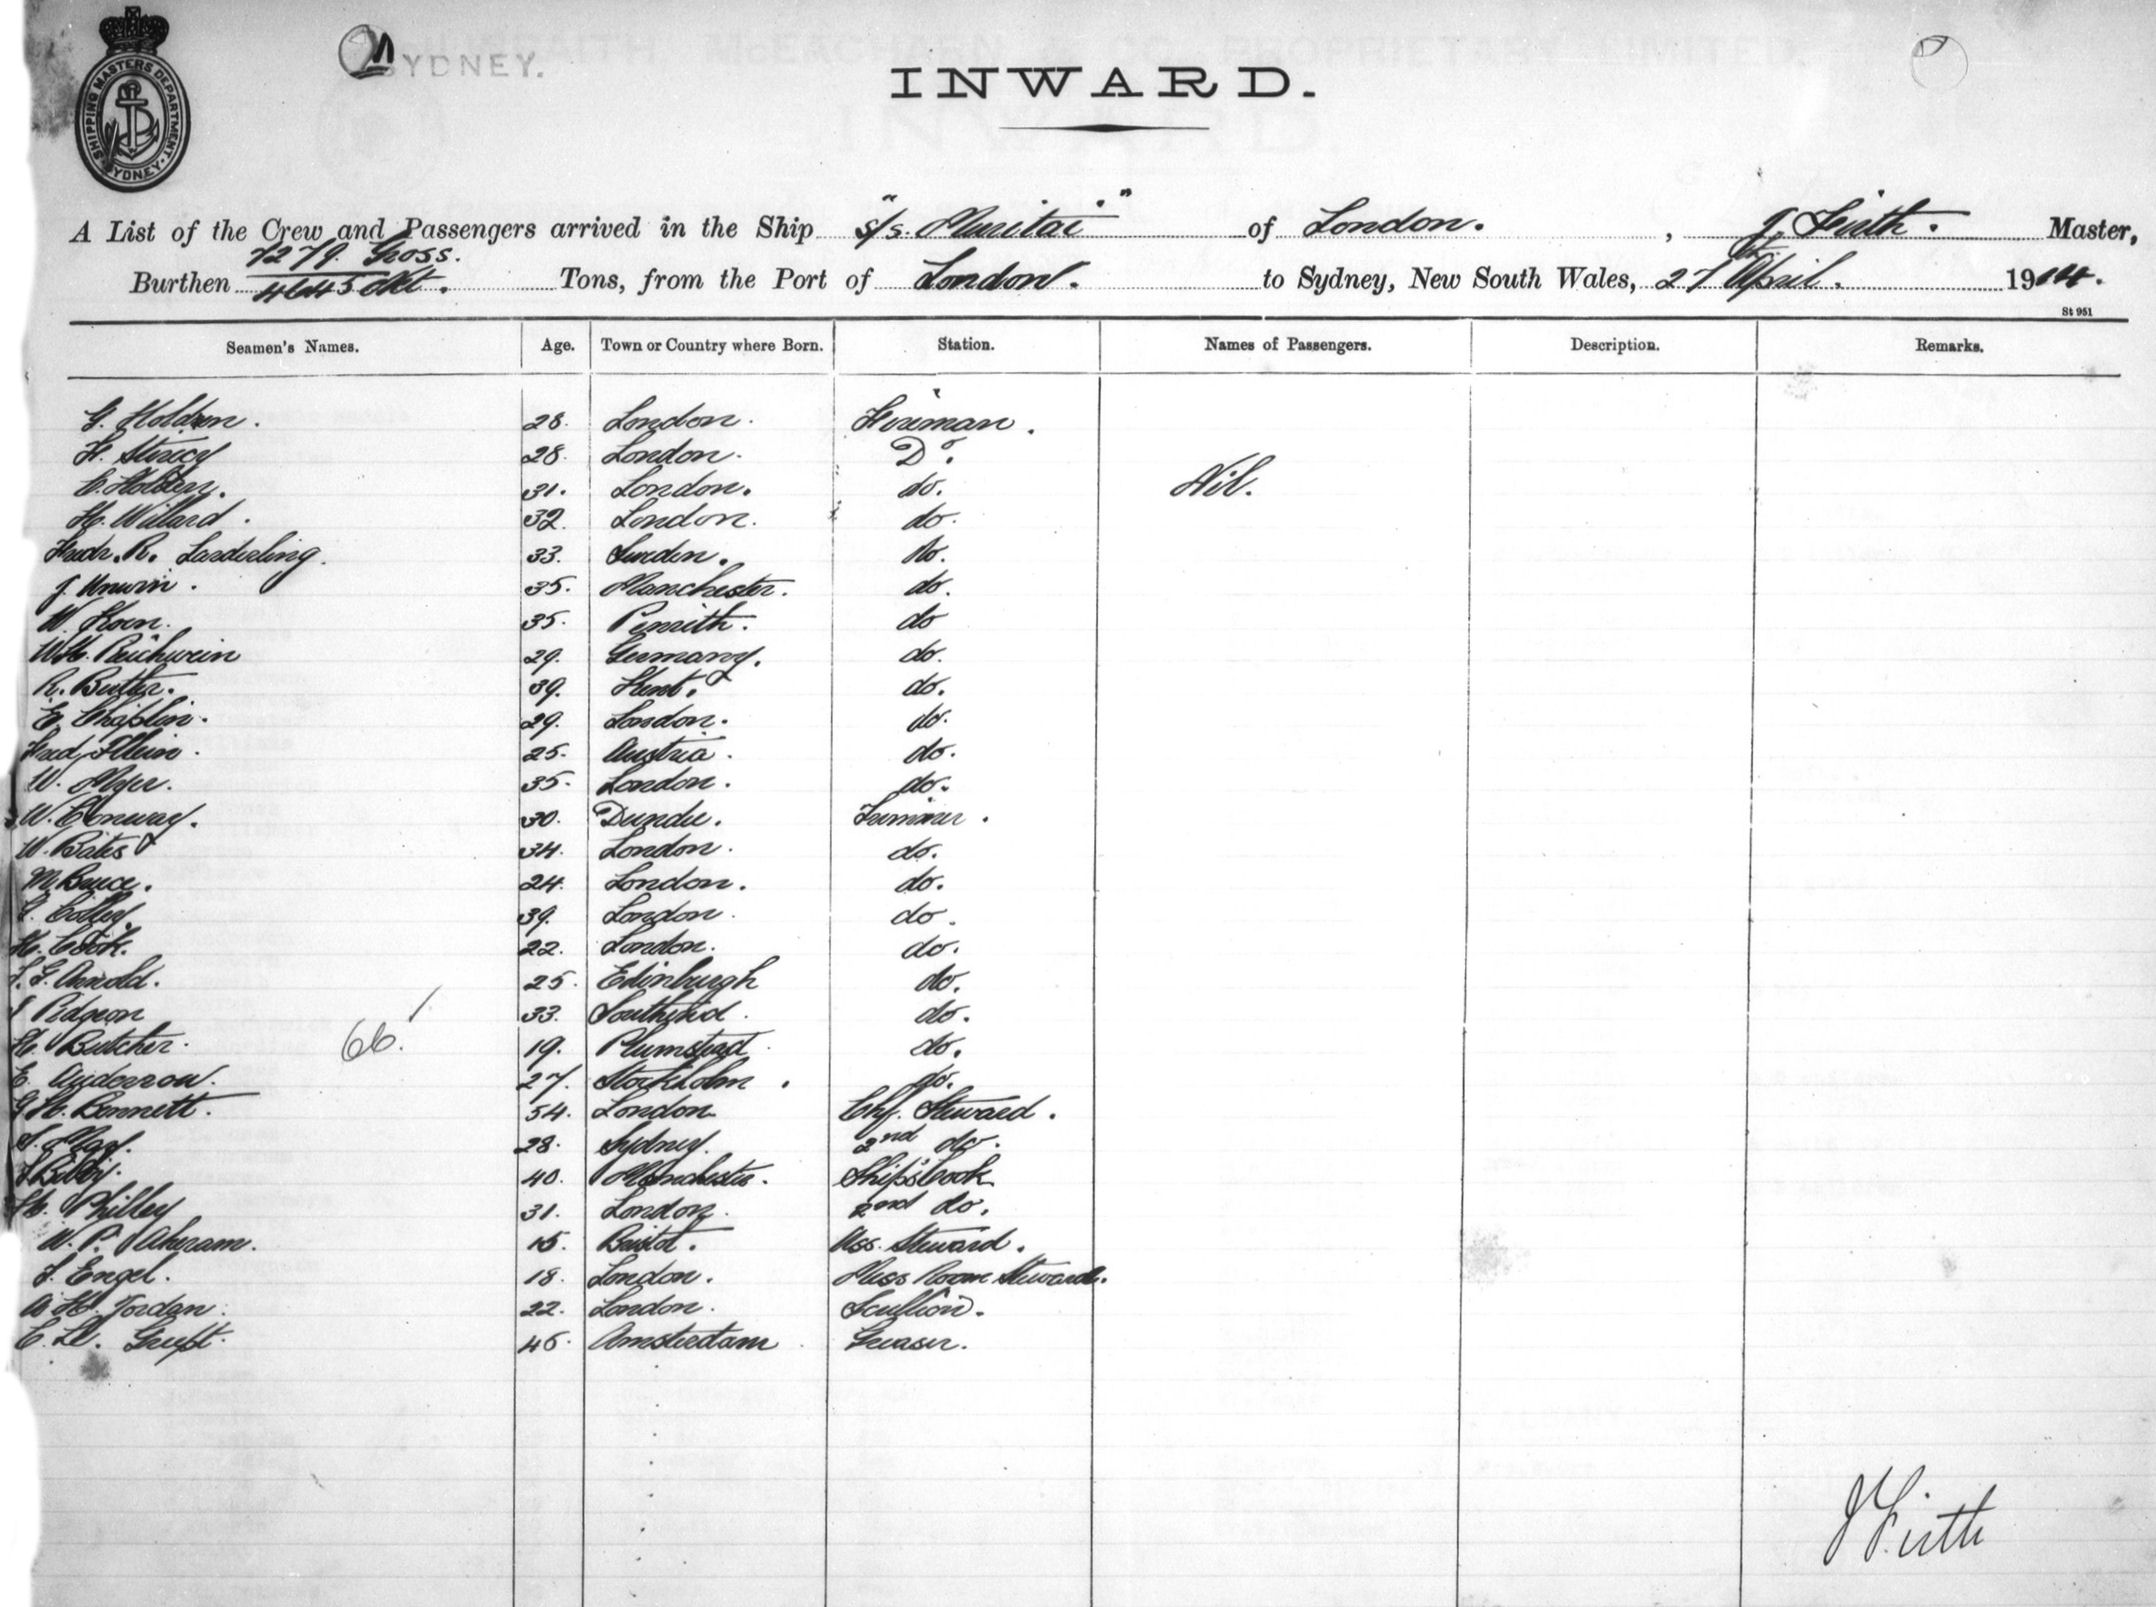 SHIPPING MASTERS DEPARTMENT SYDNEY
SYDNEY.
INWARD.
A List of the Crew and Passengers arrived in the Ship "S/s. Muritai" of London. , J. Firth. Master,
7279 Gross.
Burthen 4645 Nt. Tons, from the Port of London. to Sydney, New South Wales, 27th April. 1914.
St 951
Seamen's Names. Age. Town or Country where Born. Station. Names of Passengers. Description. Remarks.
G. Holdren. 28. London. Fireman.
H. 28. London. Do.
C. 31. London. do. Nil.
H. Willard. 32. London. do.
Fredr. R. Landerling. 33. Sweden. do.
J. Unwin. 35. Manchester. do.
W. 35. Penrith. do
W.H. Reichwein 29. Germany. do.
R. Butler. 39. Kent. do.
E. Chaplin. 29. London. do.
Fred 25. Austria. do.
W. 35. London. do.
W. Conway. 30. Dundee. Trimmer.
W. Bates 34. London. do.
M. Bruce. 24. London. do.
Colley. 39. London. do.
H. Cook. 22. London. do.
G. Arnold. 25. Edinburgh do.
Pidgeon 33. Southend. do.
H. Butcher. 66. 19. Plumstead do.
E. Anderson. 27. Stockholm. do.
G. H. Bennett. 54. London Chf. Steward.
May. 28. Sydney. 2nd do.
Bibby. 40. Manchester. Ship's Cook
H. Philley 31. London. 2nd do.
W. P. Akeram. 15. Bristol. Ass. Steward.
Engel. 18. London. Mess Room Steward.
A. H. Jordan. 22. London. Scullion.
C. 45. Amsterdam Greaser.
J Firth